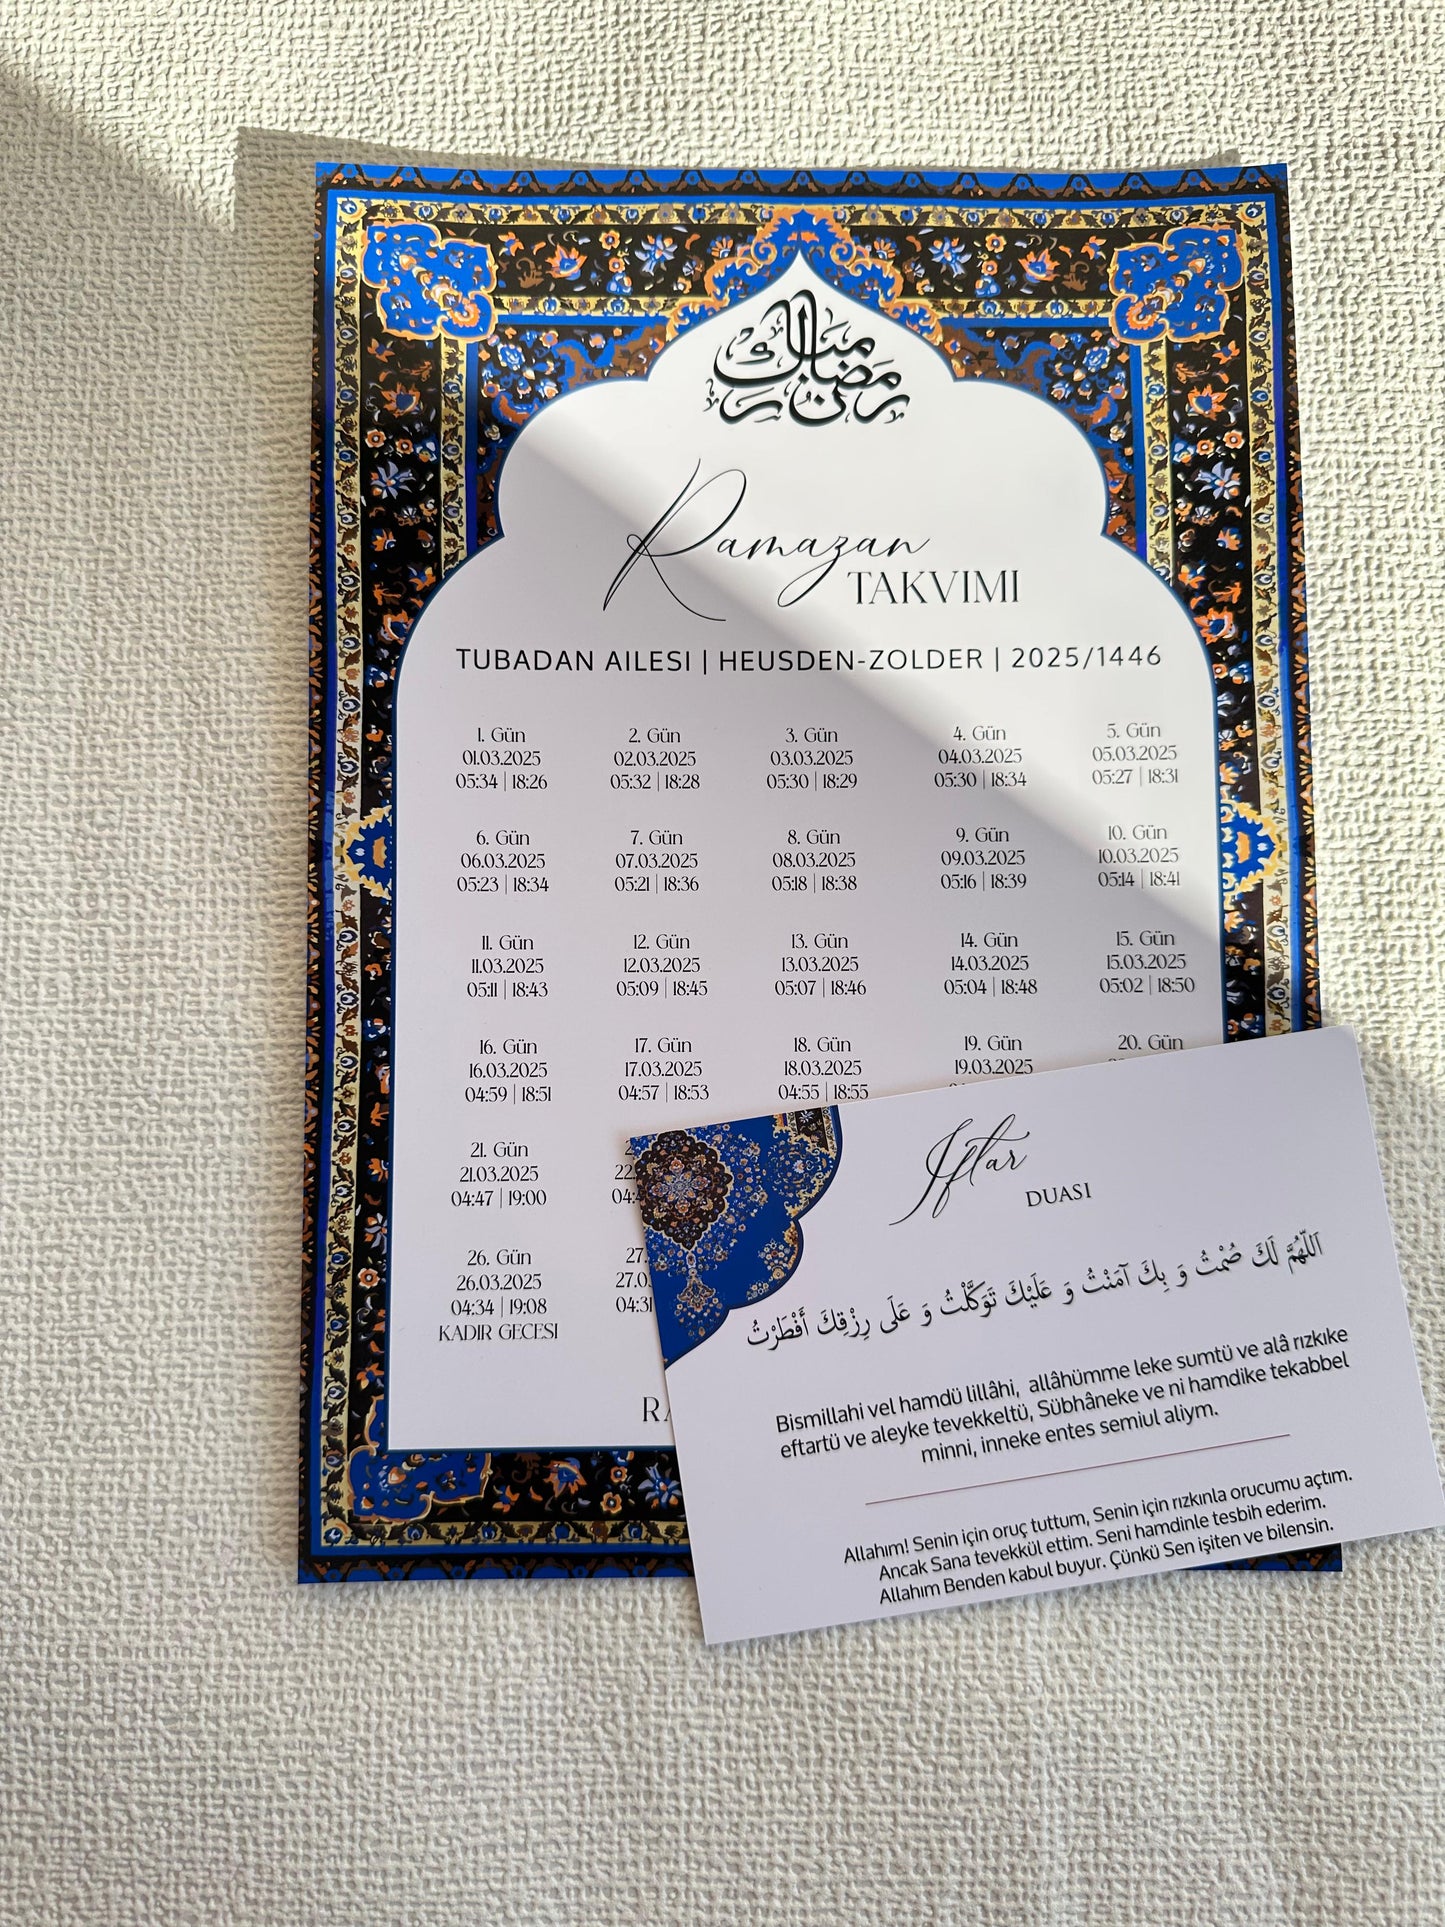 رمضان مبارك
Ramazan
TAKVIMI
TUBADAN AILESI | HEUSDEN-ZOLDER | 2025/1446
1. Gün 2. Gün 3. Gün 4. Gün 5. Gün
01.03.2025 02.03.2025 03.03.2025 04.03.2025 05.03.2025
05:34 | 18:26 05:32 | 18:28 05:30 | 18:29 05:30 | 18:34 05:27 | 18:31
6. Gün 7. Gün 8. Gün 9. Gün 10. Gün
06.03.2025 07.03.2025 08.03.2025 09.03.2025 10.03.2025
05:23 | 18:34 05:21 | 18:36 05:18 | 18:38 05:16 | 18:39 05:14 | 18:41
11. Gün 12. Gün 13. Gün 14. Gün 15. Gün
11.03.2025 12.03.2025 13.03.2025 14.03.2025 15.03.2025
05:11 | 18:43 05:09 | 18:45 05:07 | 18:46 05:04 | 18:48 05:02 | 18:50
16. Gün 17. Gün 18. Gün 19. Gün 20. Gün
16.03.2025 17.03.2025 18.03.2025 19.03.2025
04:59 | 18:51 04:57 | 18:53 04:55 | 18:55
21. Gün
21.03.2025 22.
04:47 | 19:00
26. Gün 27.
26.03.2025 27.0
04:34 | 19:08 04:31
KADIR GECESI
RA
Iftar
DUASI
اَللّٰهُمَّ لَكَ صُمْتُ وَ بِكَ آمَنْتُ وَ عَلَيْكَ تَوَكَّلْتُ وَ عَلَى رِزْقِكَ أَفْطَرْتُ
Bismillahi vel hamdü lillâhi, allâhümme leke sumtü ve alâ rızkıke
eftartü ve aleyke tevekkeltü, Sübhâneke ve ni hamdike tekabbel
minni, inneke entes semiul aliym.
Allahım! Senin için oruç tuttum, Senin için rızkınla orucumu açtım.
Ancak Sana tevekkül ettim. Seni hamdinle tesbih ederim.
Allahım Benden kabul buyur. Çünkü Sen işiten ve bilensin.